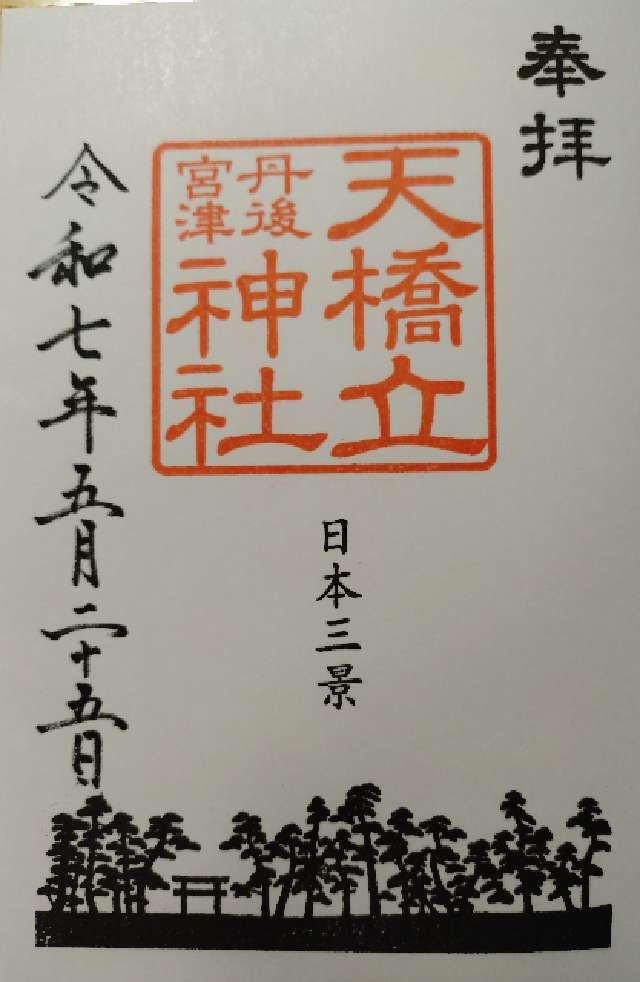 奉拝
天橋立
丹後
宮津
神社
日本三景
令和七年五月二十五日